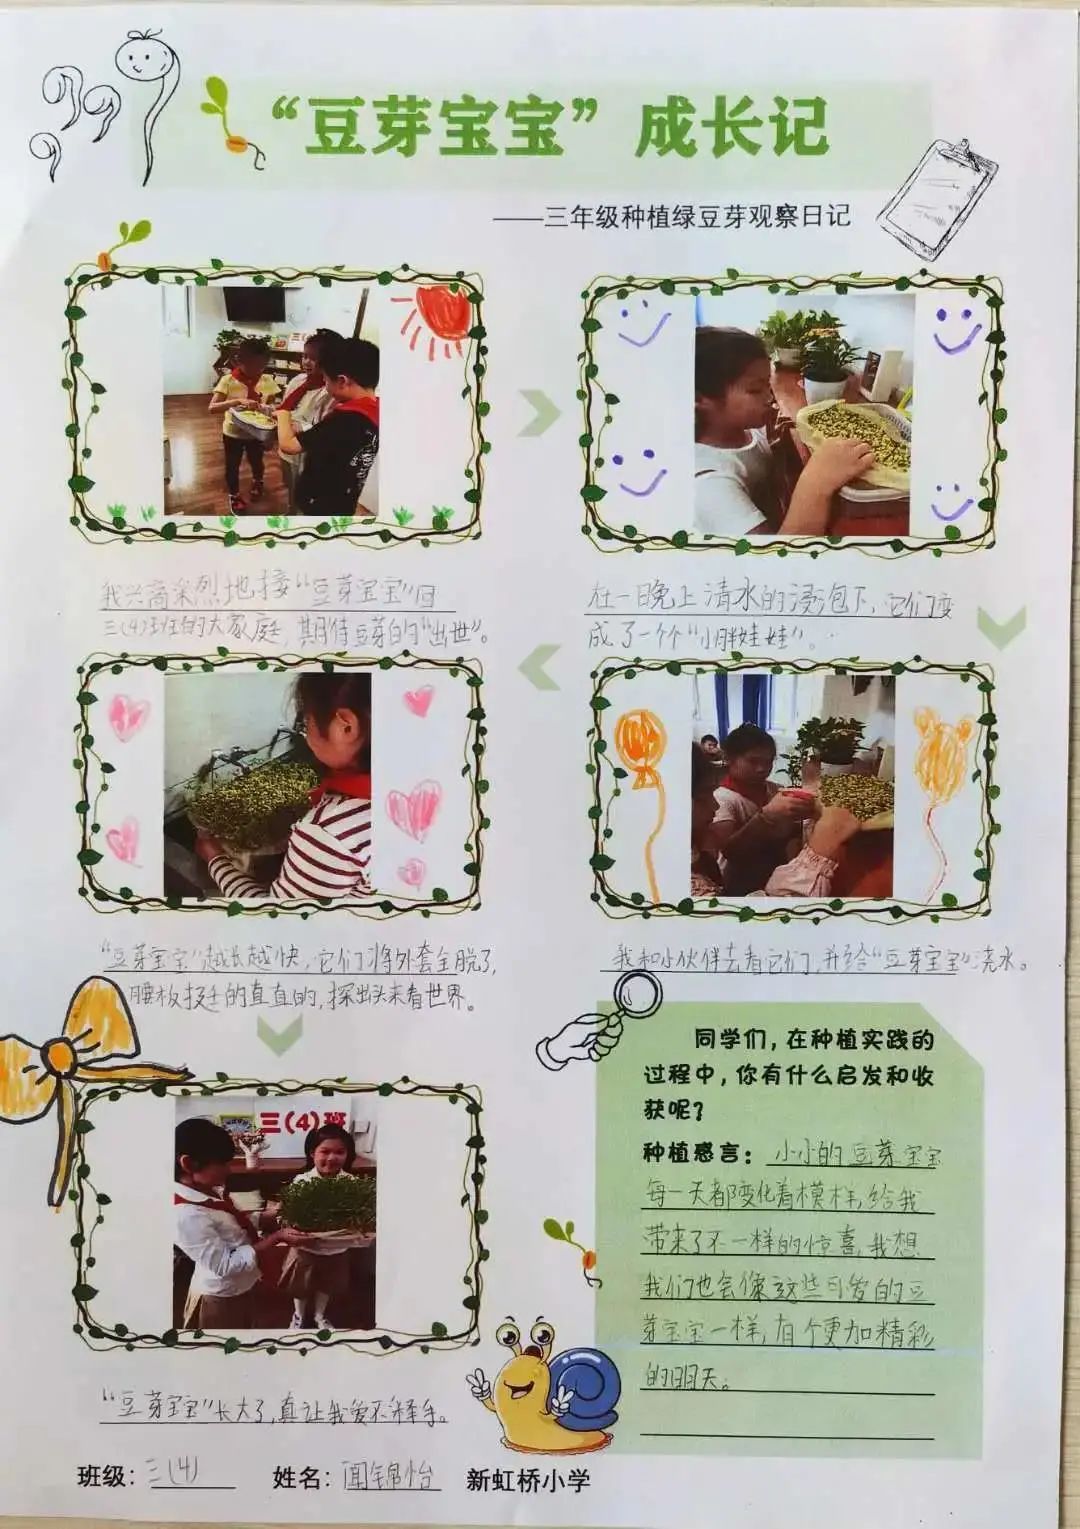 “豆芽宝宝”成长记
——三年级种植绿豆芽观察日记
我兴高采烈地接“豆芽宝宝”回
三(4)班的大家庭，期待豆芽的“出世”。
在一晚上清水的浸泡下，它们变
成了一个个“小胖娃娃”。
我和小伙伴去看它们，并给“豆芽宝宝”浇水。
“豆芽宝宝”越长越快，它们将外套全脱了，
腰板挺的直直的，探出头来看世界。
三(4)班
“豆芽宝宝”长大了，真让我爱不释手。
同学们，在种植实践的
过程中，你有什么启发和收
获呢？
种植感言：小小的豆芽宝宝
每一天都变化着模样，给我
带来了不一样的惊喜，我想
我们也会像这些可爱的豆
芽宝宝一样，有个更加精彩
的明天。
班级：三(4) 姓名：闻锦怡 新虹桥小学